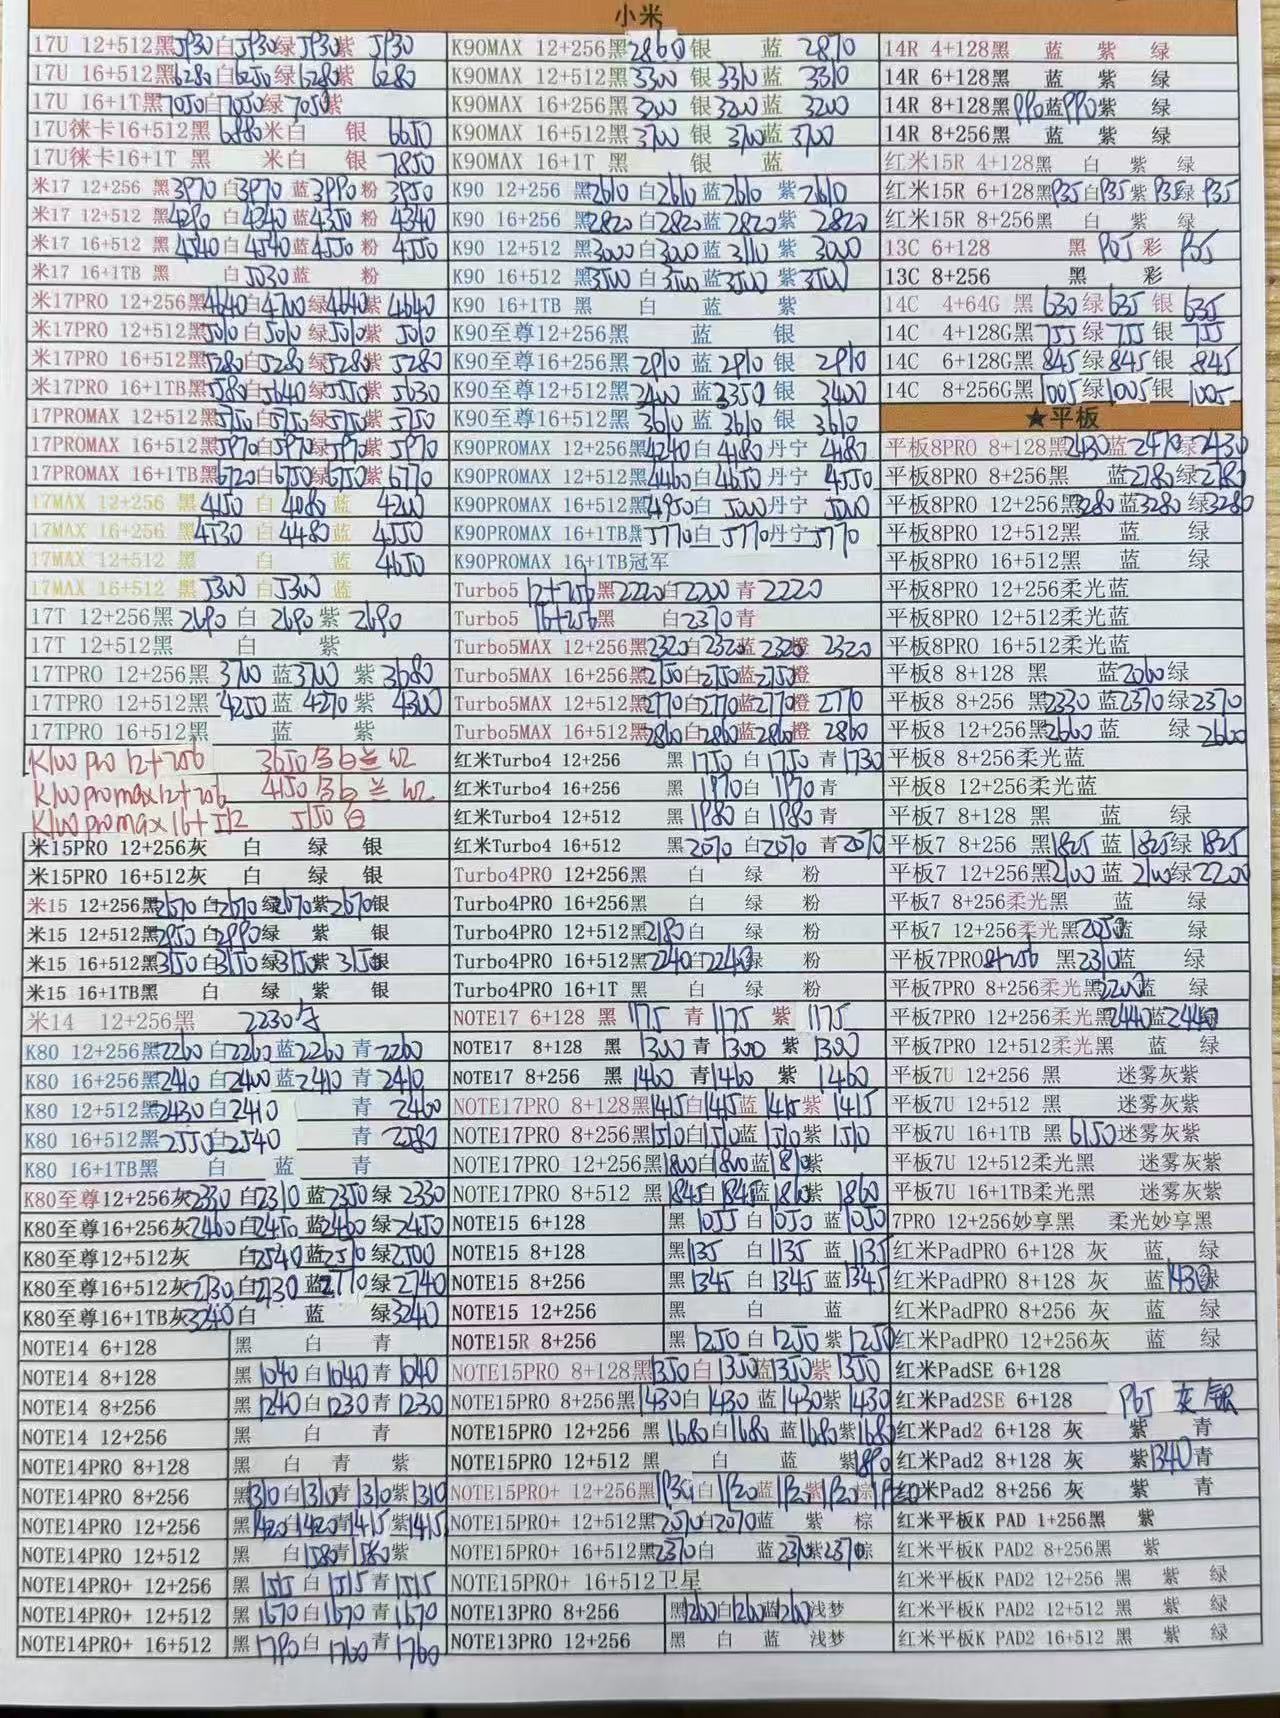 小米
17U 12+512黑5930白5930绿5930紫 5930
17U 16+512黑6280白6250绿6280紫 6280
17U 16+1T黑7050白7050绿7050紫
17U徕卡16+512黑 6880米白 银 6650
17U徕卡16+1T 黑 米白 银 7850
米17 12+256 黑3970白3970蓝3990粉 3950
米17 12+512 黑4290白4340蓝4350粉 4340
米17 16+512 黑4540白4540蓝4550粉 4550
米17 16+1TB 黑 白5030蓝 粉
米17PRO 12+256黑4640白4700绿4640紫 4640
米17PRO 12+512黑5010白5010绿5010紫 5010
米17PRO 16+512黑5280白5280绿5280紫 5280
米17PRO 16+1TB黑5580白5640绿5550紫 5630
17PROMAX 12+512黑5750白5750绿5750紫 5750
17PROMAX 16+512黑5970白5970绿5970紫 5970
17PROMAX 16+1TB黑6720白6750绿6750紫 6770
17MAX 12+256 黑 4150 白 4080 蓝 4200
17MAX 16+256 黑 4530 白 4480 蓝 4550
17MAX 12+512 黑 白 蓝 4650
17MAX 16+512 黑 5300 白5300 蓝
17T 12+256黑 2690 白 2690 紫 2690
17T 12+512黑 白 紫
17TPRO 12+256黑 3700 蓝3700 紫 3680
17TPRO 12+512黑 4250 蓝 4270 紫 4300
17TPRO 16+512黑 蓝 紫
K100 pro 12+256 3650 白兰红
K100 promax12+256 4150 白兰红
K100 promax 16+512 5150 白
米15PRO 12+256灰 白 绿 银
米15PRO 16+512灰 白 绿 银
米15 12+256黑2670白2670绿2670紫2670银
米15 12+512黑2950白2990绿 紫 银
米15 16+512黑3150白3150绿3150紫 3150银
米15 16+1TB黑 白 绿 紫 银
米14 12+256黑 2230
K80 12+256黑2260白2260蓝2260青 2260
K80 16+256黑2410白2400蓝2410 青 2410
K80 12+512黑2430白2410 青 2460
K80 16+512黑2550白2540 青 2580
K80 16+1TB黑 白 蓝 青
K80至尊12+256灰2330白2310蓝2350绿 2330
K80至尊16+256灰2460白2450蓝2460绿2450
K80至尊12+512灰 白2540蓝2570绿2500
K80至尊16+512灰2730白2730蓝2770绿2740
K80至尊16+1TB灰3240白 蓝 绿3240
NOTE14 6+128 黑 白 青
NOTE14 8+128 黑1040白1040青1040
NOTE14 8+256 黑1240白1230青1230
NOTE14 12+256 黑 白 青
NOTE14PRO 8+128 黑 白 青 紫
NOTE14PRO 8+256 黑1310白1310青1310紫1310
NOTE14PRO 12+256 黑1420白1420青1415紫1415
NOTE14PRO 12+512 黑 白1580青1580紫
NOTE14PRO+ 12+256 黑1515白1515青1515
NOTE14PRO+ 12+512 黑1670白1670青1670
NOTE14PRO+ 16+512 黑1790白1760青1760
K90MAX 12+256黑2860银 蓝 2870
K90MAX 12+512黑3300 银3310蓝 3310
K90MAX 16+256黑3200 银3200蓝 3200
K90MAX 16+512黑3700 银3700蓝3700
K90MAX 16+1T 黑 银 蓝
K90 12+256 黑2610白2610蓝2610 紫2610
K90 16+256 黑2820白2820蓝2820紫 2820
K90 12+512 黑3000白3000蓝3110紫 3000
K90 16+512 黑3500白3500蓝3500紫3500
K90 16+1TB 黑 白 蓝 紫
K90至尊12+256黑 蓝 银
K90至尊16+256黑 2910 蓝 2910 银 2910
K90至尊12+512黑 3400 蓝 3350 银 3400
K90至尊16+512黑 3610 蓝 3610 银 3610
K90PROMAX 12+256黑4240白 4180丹宁 4180
K90PROMAX 12+512黑4460白4650 丹宁 4550
K90PROMAX 16+512黑4950白 5000丹宁 5000
K90PROMAX 16+1TB黑5770白 5770丹宁5770
K90PROMAX 16+1TB冠军
Turbo5 12+256黑2220白2200青2220
Turbo5 16+256黑 白2370青
Turbo5MAX 12+256黑2320白2320蓝2320橙 2320
Turbo5MAX 16+256黑2750白2750蓝2750橙
Turbo5MAX 12+512黑2770白2770蓝2770橙 2770
Turbo5MAX 16+512黑2860白2860蓝2860橙 2860
红米Turbo4 12+256 黑1750白1750青1730
红米Turbo4 16+256 黑 1970白 1970青
红米Turbo4 12+512 黑 1980白 1980青
红米Turbo4 16+512 黑2070 白2070 青2070
Turbo4PRO 12+256黑 白 绿 粉
Turbo4PRO 16+256黑 白 绿 粉
Turbo4PRO 12+512黑2180白 绿 粉
Turbo4PRO 16+512黑2240白2240绿 粉
Turbo4PRO 16+1T 黑 白 绿 粉
NOTE17 6+128 黑 1175 青 1175 紫 1175
NOTE17 8+128 黑 1300 青 1300 紫 1300
NOTE17 8+256 黑 1460 青1460 紫 1460
NOTE17PRO 8+128黑1415白1415蓝1415紫 1415
NOTE17PRO 8+256黑1510白1510蓝1510紫 1510
NOTE17PRO 12+256黑1800白1800蓝1810紫
NOTE17PRO 8+512 黑1845白1845蓝1860紫 1860
NOTE15 6+128 黑 1055 白 1050 蓝1050
NOTE15 8+128 黑1135 白 1135 蓝1135
NOTE15 8+256 黑1345 白1345 蓝1345
NOTE15 12+256 黑 白 蓝
NOTE15R 8+256 黑1250白1250紫1250
NOTE15PRO 8+128黑1350白1350蓝1350紫1350
NOTE15PRO 8+256黑1430白1430 蓝1430紫1430
NOTE15PRO 12+256 黑1680白1680 蓝1680紫1680
NOTE15PRO 12+512 黑 白 蓝 紫1890
NOTE15PRO+ 12+256 黑1930白1920蓝1920紫1920棕1920
NOTE15PRO+ 12+512黑2070白2070蓝 紫 棕
NOTE15PRO+ 16+512黑2370白 蓝2370紫2370棕
NOTE15PRO+ 16+512卫星
NOTE13PRO 8+256 黑1260白1260蓝1260浅梦
NOTE13PRO 12+256 黑 白 蓝 浅梦
14R 4+128黑 蓝 紫 绿
14R 6+128黑 蓝 紫 绿
14R 8+128黑990蓝990紫 绿
14R 8+256黑 蓝 紫 绿
红米15R 4+128黑 白 紫 绿
红米15R 6+128黑935白935紫 935绿 935
红米15R 8+256黑 白 紫 绿
13C 6+128 黑 905 彩 905
13C 8+256 黑 彩
14C 4+64G 黑 630绿 635 银 635
14C 4+128G黑 755绿 755 银 755
14C 6+128G黑 845绿 845银 845
14C 8+256G黑 1005绿1005银 1005
★平板
平板8PRO 8+128黑2430蓝2470绿2430
平板8PRO 8+256黑 蓝2780绿2780
平板8PRO 12+256黑3280蓝3280绿3280
平板8PRO 12+512黑 蓝 绿
平板8PRO 16+512黑 蓝 绿
平板8PRO 12+256柔光蓝
平板8PRO 12+512柔光蓝
平板8PRO 16+512柔光蓝
平板8 8+128 黑 蓝2060绿
平板8 8+256 黑2330蓝2370绿2370
平板8 12+256黑2660蓝 绿 2660
平板8 8+256柔光蓝
平板8 12+256柔光蓝
平板7 8+128 黑 蓝 绿
平板7 8+256 黑1825蓝 1825绿 1825
平板7 12+256黑2100蓝 2100绿2200
平板7 8+256柔光黑 蓝 绿
平板7 12+256柔光黑2050蓝 绿
平板7PRO8+256 黑2310蓝 绿
平板7PRO 8+256柔光黑2200蓝 绿
平板7PRO 12+256柔光黑2440蓝2440绿
平板7PRO 12+512柔光黑 蓝 绿
平板7U 12+256 黑 迷雾灰紫
平板7U 12+512 黑 迷雾灰紫
平板7U 16+1TB 黑 6150迷雾灰紫
平板7U 12+512柔光黑 迷雾灰紫
平板7U 16+1TB柔光黑 迷雾灰紫
7PRO 12+256妙享黑 柔光妙享黑
红米PadPRO 6+128 灰 蓝 绿
红米PadPRO 8+128 灰 蓝1430绿
红米PadPRO 8+256 灰 蓝 绿
红米PadPRO 12+256灰 蓝 绿
红米PadSE 6+128
红米Pad2SE 6+128 965 灰/银
红米Pad2 6+128 灰 紫 青
红米Pad2 8+128 灰 紫1340青
红米Pad2 8+256 灰 紫 青
红米平板K PAD 1+256黑 紫
红米平板K PAD2 8+256黑 紫
红米平板K PAD2 12+256 黑 紫 绿
红米平板K PAD2 12+512 黑 紫 绿
红米平板K PAD2 16+512 黑 紫 绿